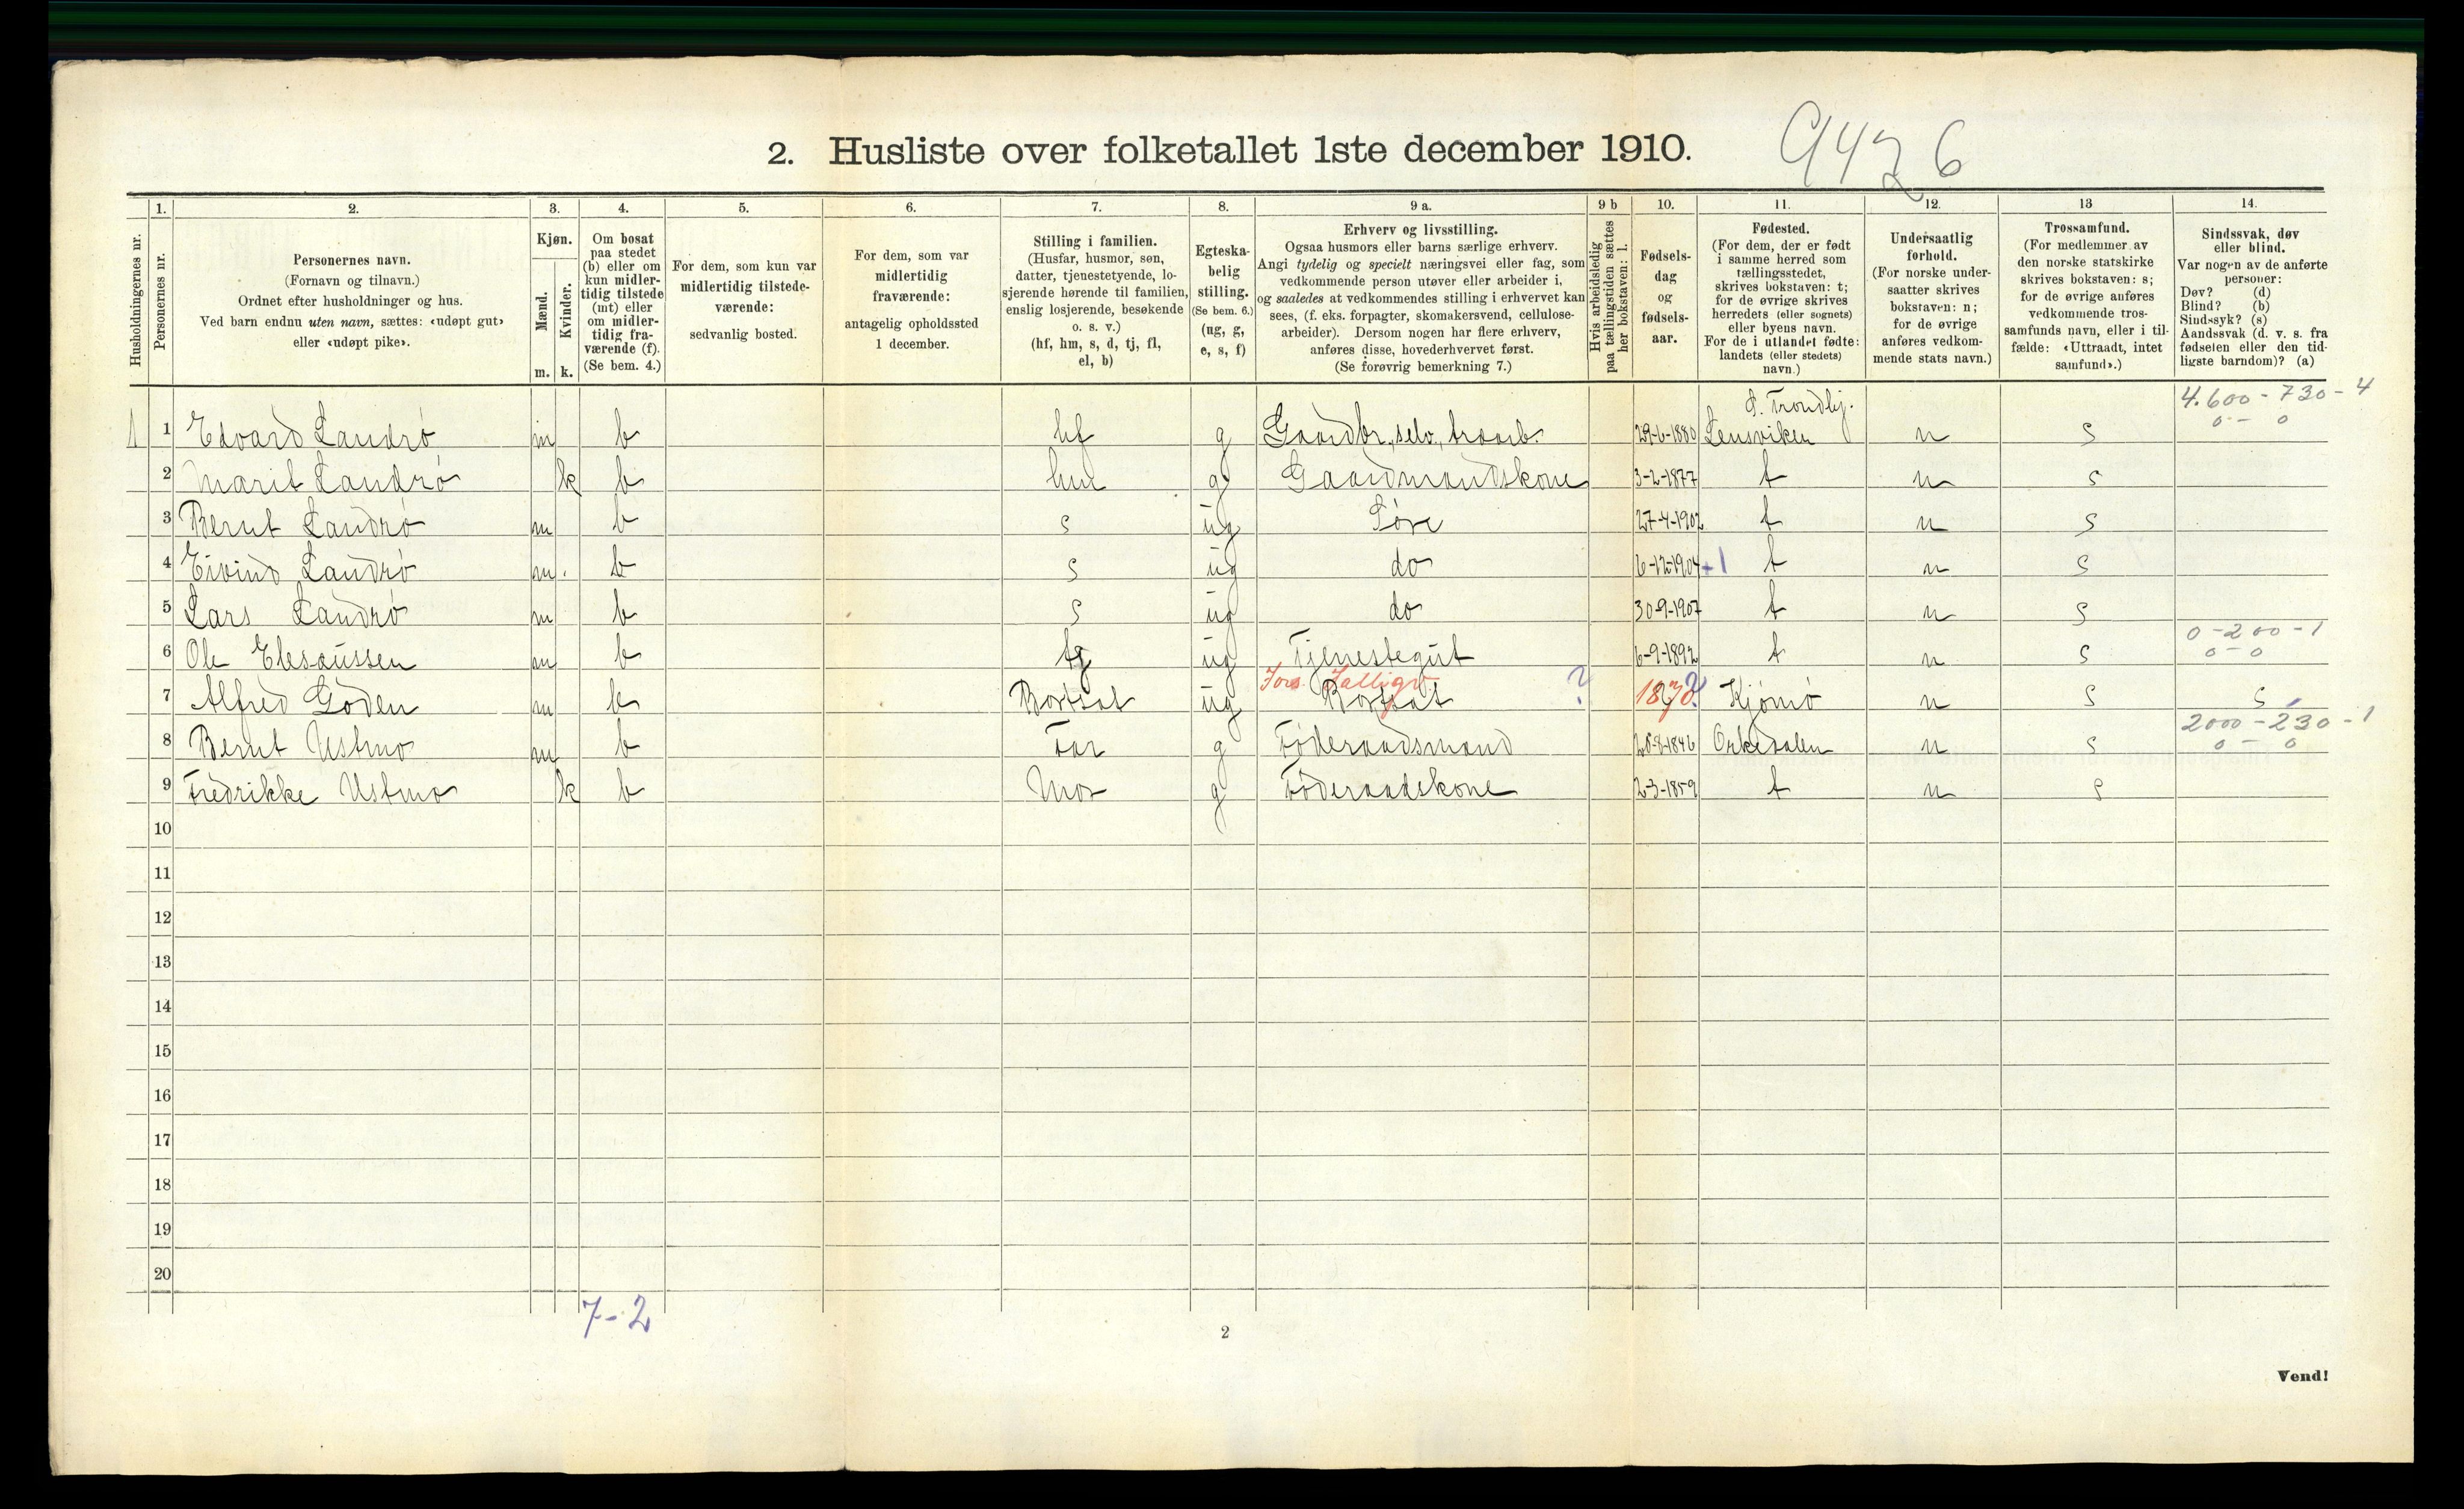 2. Husliste over folketallet 1ste december 1910.
9426
Husholdningernes nr.
1.
Personernes nr.
2.
Personernes navn.
(Fornavn og tilnavn.)
Ordnet efter husholdninger og hus.
Ved barn endnu uten navn, sættes: «udøpt gut»
eller «udøpt pike».
3.
Kjøn.
Mænd.
Kvinder.
m. k.
4.
Om bosat
paa stedet
(b) eller om
kun midler-
tidig tilstede
(mt) eller
om midler-
tidig fra-
værende (f).
(Se bem. 4.)
5.
For dem, som kun var
midlertidig tilstede-
værende:
sedvanlig bosted.
6.
For dem, som var
midlertidig
fraværende:
antagelig opholdssted
1 december.
7.
Stilling i familien.
(Husfar, husmor, søn,
datter, tjenestetyende, lo-
sjerende hørende til familien,
enslig losjerende, besøkende
o. s. v.)
(hf, hm, s, d, tj, fl,
el, b)
8.
Egteska-
belig
stilling.
(Se bem. 6.)
(ug, g,
e, s, f)
9 a.
Erhverv og livsstilling.
Ogsaa husmors eller barns særlige erhverv.
Angi tydelig og specielt næringsvei eller fag, som
vedkommende person utøver eller arbeider i,
og saaledes at vedkommendes stilling i erhvervet kan
sees, (f. eks. forpagter, skomakersvend, cellulose-
arbeider). Dersom nogen har flere erhverv,
anføres disse, hovederhvervet først.
(Se forøvrig bemerkning 7.)
9 b
Hvis arbeidsledig
paa tællingstiden sættes
her bokstaven: l.
10.
Fødsels-
dag
og
fødsels-
aar.
11.
Fødested.
(For dem, der er født
i samme herred som
tællingsstedet,
skrives bokstaven: t;
for de øvrige skrives
herredets (eller sognets)
eller byens navn.
For de i utlandet fødte:
landets (eller stedets)
navn.)
12.
Undersaatlig
forhold.
(For norske under-
saatter skrives
bokstaven: n;
for de øvrige
anføres vedkom-
mende stats navn.)
13
Trossamfund.
(For medlemmer av
den norske statskirke
skrives bokstaven: s;
for de øvrige anføres
vedkommende tros-
samfunds navn, eller i til-
fælde: «Uttraadt, intet
samfund».)
14.
Sindssvak, døv
eller blind.
Var nogen av de anførte
personer:
Døv? (d)
Blind? (b)
Sindssyk? (s)
Aandssvak (d. v. s. fra
fødselen eller den tid-
ligste barndom)? (a)
S. Trondhj. 4.600 - 730 - 4
0 - 0
1 1 Edvard Landrø m b hf g Gaardbr., selv, 29-6-1880 Lensviken n s
2 Marit Landrø k b hm g Gaardmandskone 3-2-1877 t n s
3 Bernt Landrø m b s ug Søn 27-4-1902 t n s
4 Eivind Landrø m. b s ug do 6-12-1904 +1 t n s
5 Lars Landrø m b s ug do 30-9-1907 t n s
0 - 200 - 1
0 - 0
6 Ole Elesaussen m b tj ug Tjenestegut 6-9-1892 t n s
Fors. ?
7 Alfred Goden m b Bortsat ug Bortsat 1870 Kjømø n s s
2000 - 230 - 1
0 - 0
8 Bernt Ustmo m b Far g Føderaadsmand 1846 Orkedalen n s
9 Fredrikke Ustmo k b Mor g Føderaadskone 2-3-1859 t n s
10
11
12
13
14
15
16
17
18
19
20
7-2
2
Vend!